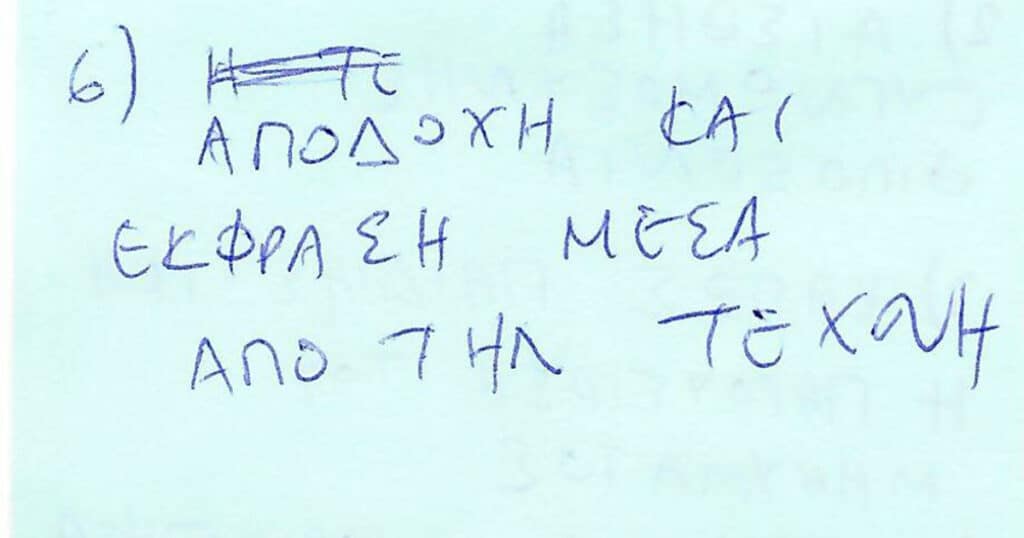 6) Η ΤΕ
ΑΠΟΔΟΧΗ ΚΑΙ
ΕΚΦΡΑΣΗ ΜΕΣΑ
ΑΠΟ ΤΗΝ ΤΕΧΝΗ